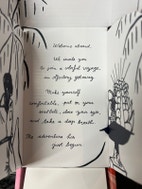 Welcome aboard.
We invite you
to join a colorful voyage,
an olfactory journey.
Make yourself
comfortable, put on your
seatbelt, close your eyes,
and take a deep breath.
The adventure has
just begun.